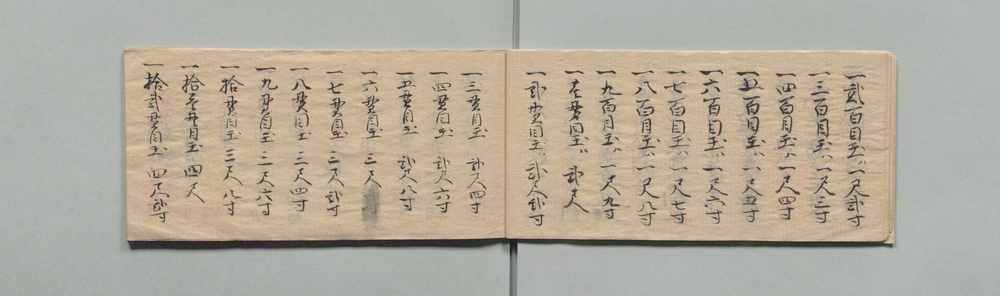 一弐百目玉ハ一尺弐寸
一三百目玉ハ一尺三寸
一四百目玉ハ一尺四寸
一五百目玉ハ一尺五寸
一六百目玉ハ一尺六寸
一七百目玉ハ一尺七寸
一八百目玉ハ一尺八寸
一九百目玉ハ一尺九寸
一壱貫目玉ハ弐尺
一弐貫目玉ハ弐尺弐寸
一三貫目玉 弐尺四寸
一四貫目玉 弐尺六寸
一五貫目玉 弐尺八寸
一六貫目玉 三尺
一七貫目玉 三尺弐寸
一八貫目玉 三尺四寸
一九貫目玉 三尺六寸
一拾貫目玉 三尺八寸
一拾壱貫目玉 四尺
一拾弐貫目玉 四尺弐寸